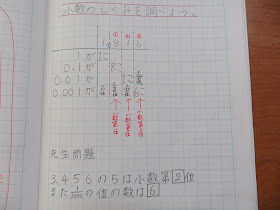 小数のしくみを調べよう。
1.816
1が1こ
0.1が 8こ
0.01が 1こ
0.001が 6こ
小数第一位
小数第二位
小数第三位
先生問題
3.456の5は小数第2位
また1/1000の位の数は6